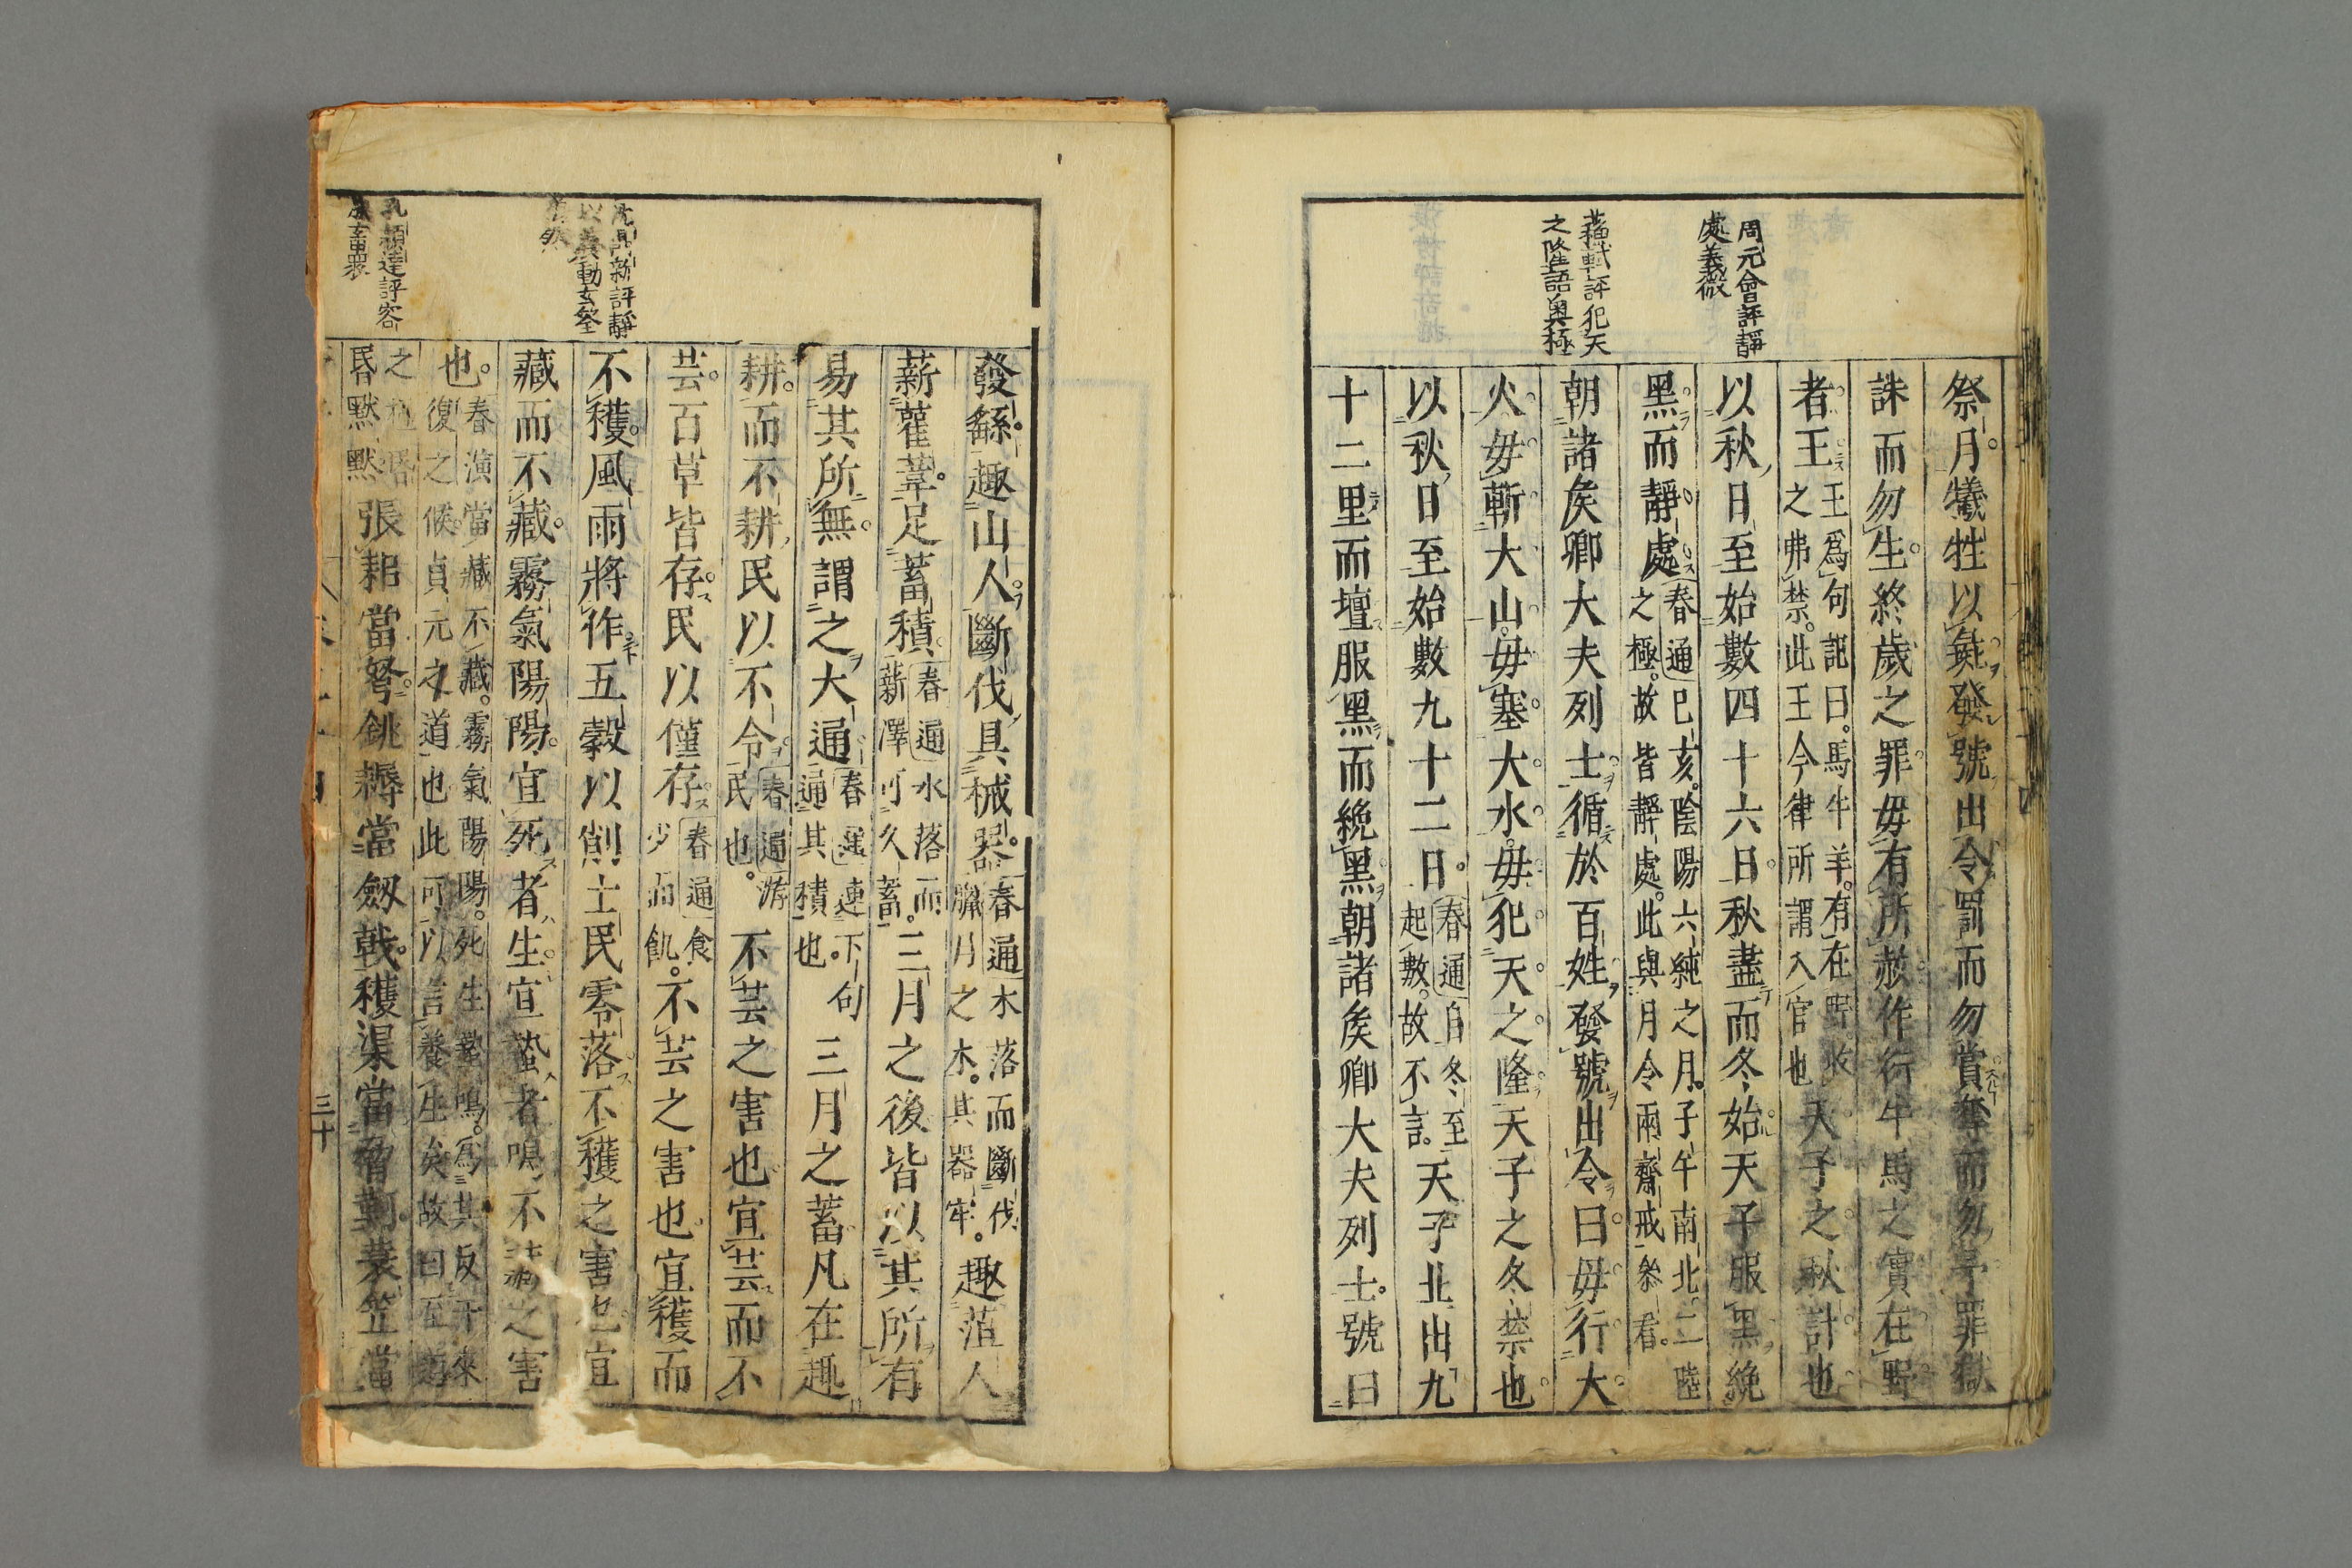 周元會評靜
處義微
蘇軾評犯天
之隆語奧極
祭月犧牲以彘發號出令罰而勿賞奪而勿予罪獄
誅而勿生終歲之罪毋有所赦作衍牛馬之實在野
者王王爲句記曰馬牛羊有在野收
之弗禁此王今律所謂入官也天子之秋計也
以秋日至始數四十六日秋盡而冬始天子服黑絻
黑而靜處春通巳亥陰陽六純之月子午南北二陸
之極故皆靜處此與月令兩齋戒叅看
朝諸矦卿大夫列士循於百姓發號出令曰毋行大
火毋斬大山毋塞大水毋犯天之隆天子之冬禁也
以秋日至始數九十二日春通自冬至
起數故不言天子北出九
十二里而壇服黑而絻黑朝諸矦卿大夫列士號曰
沈鼎新評靜
以義動玄祭
孔頴達評容
發繇趣山人斷伐具械器春通木落而斷伐
臘月之木其器牢趣菹人
薪雚葦足蓄積春通水落而
薪澤可久蓄三月之後皆以其所有
易其所無謂之大通春通連下句
通其積也三月之蓄凡在趣
耕而不耕民以不令春通游
民也不芸之害也宜芸而不
芸百草皆存民以僅存春通食
少而飢不芸之害也宜穫而
不穫風雨將作五穀以削士民零落不穫之害也宜
藏而不藏霧氣陽陽宜死者生宜蟄者鳴不藏之害
也春演當藏不藏霧氣陽陽死生蟄鳴爲其反于來
復之候貞元之道也此可以言養生矣故曰至道
之極昏
昏默默張耜當弩銚耨當劒戟穫渠當脅䩭蓑笠當
三十